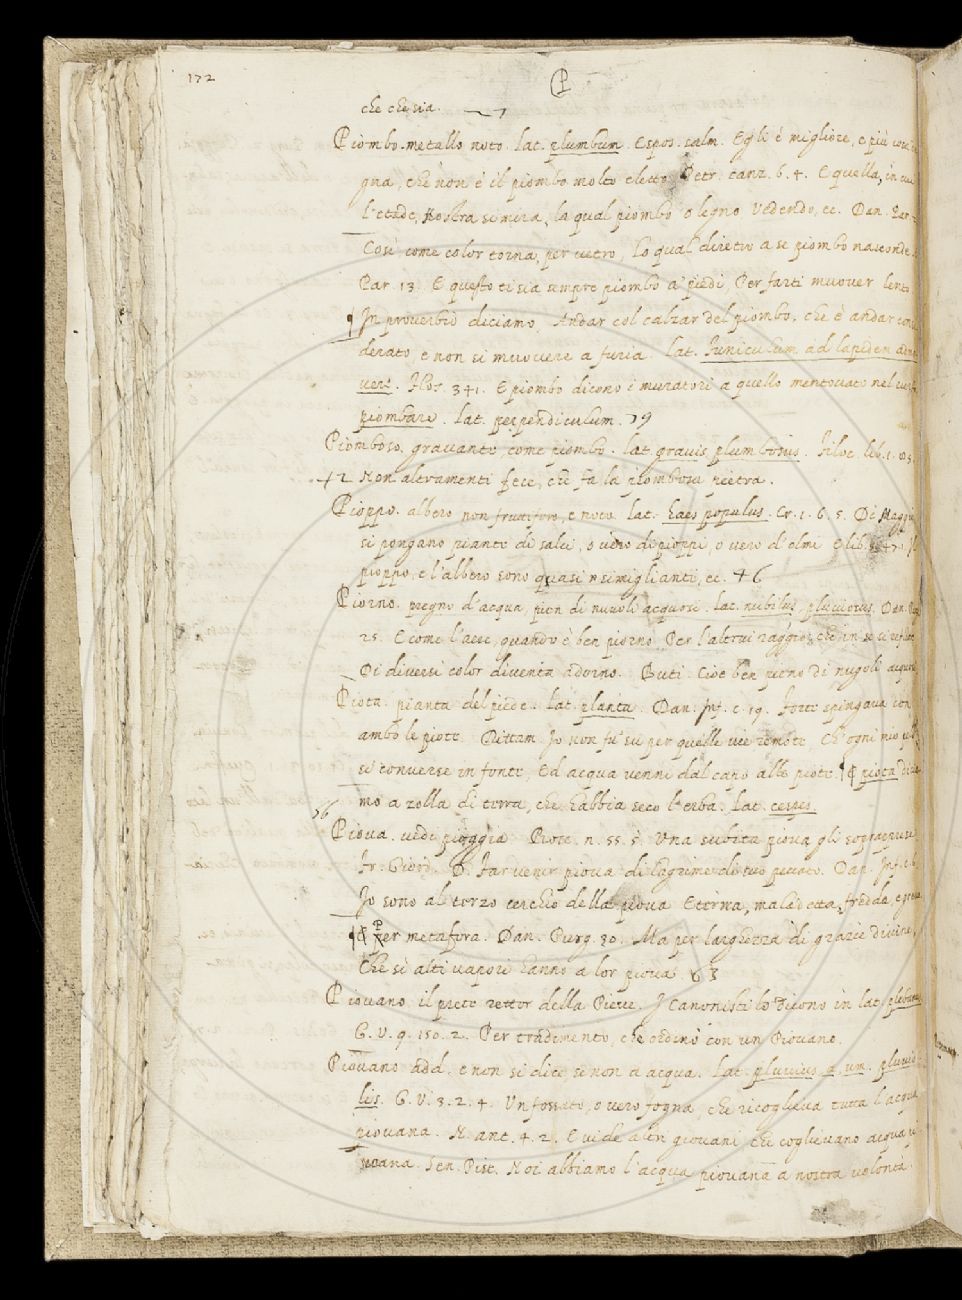 132
P
che che sia.
Piombo. metallo noto. Lat. plumbum. Espos. salm. Egli è migliore, e più
gna, che non è il piombo molto eletto. Petr. canz. 6. 4. E quella, in cui
l'etade, Nostra si mira, la qual piombo, o legno Vedendo, ec. Dan. Par.
Così come color torna, per vetro, Lo qual diretro a se piombo nasconde.
Par. 13. E questo ti sia sempre piombo a' piedi, Per farti muover lento
In proverbio diciamo, Andar col calzar del piombo, che è andar
derato, e non si muovere a furia. Lat. funiculum ad lapidem
vert. Flos. 341. E piombo dicono i muratori a quello mentovato nel
piombare. Lat. perpendiculum. 79
Piomboso, gravante, come piombo. Lat. gravis, plumbosus. Filoc. lib. 1.
42 Non altramenti fece, che fa la piombosa pietra.
Pioppo. albero non fruttifero, e noto. Lat. populus. Cr. 1. 6. 5. Di Maggio
si pongano piante di salci, o vero di pioppi, o vero d'olmi E lib.
pioppo, e l'albero sono quasi simiglianti, ec. 46
Piorno. pregno d'acqua, pien di nuvoli acquosi. Lat. nubilus, pluviosus. Dan. Purg
25. E come l'aere, quando è ben piorno, Per l'altrui raggio, che in se si reflette
Di diversi color diventa adorno. Buti. Cioè ben pieno di nugoli acquosi
Piota. pianta del piede. Lat. planta. Dan. Inf. c. 19. Forte spingava con
ambo le piote. Dittam. Io non fu' su per quelle vie remote, Ch'ogni mio
si converse in fonte, Ed acqua venni dal capo alle piote. E piota
mo a zolla di terra, che habbia seco l'erba. Lat. cespes.
56
Piova. vedi pioggia Bocc. n. 55. 5. Una subita piova gli soprapprese
Fr. Giord. D. Far venir piova di lagrime di tuo peccato. Dan. Inf. c. 6
Io sono al terzo cerchio della piova Eterna, maladetta, fredda, e greve
Per metafora. Dan. Purg. 30. Ma per larghezza di grazie divine,
Che sì alti vapori hanno a lor piova 63
Piovano. il prete rettor della Pieve. I Canonisti lo dicono in lat. plebanus
G. V. 9. 150. 2. Per tradimento, che ordinò con un Piovano.
Piovano add. e non si dice, se non d'acqua. Lat. pluvius, a, um. pluvia
lis. G. V. 3. 2. 4. Un fossato, o vero fogna, che ricoglieva tutta l'acqua
piovana. N. ant. 4. 2. E vide alen giovani che coglievano acqua pi
ovana. Sen. Pist. Noi abbiamo l'acqua piovana a nostra volontà.